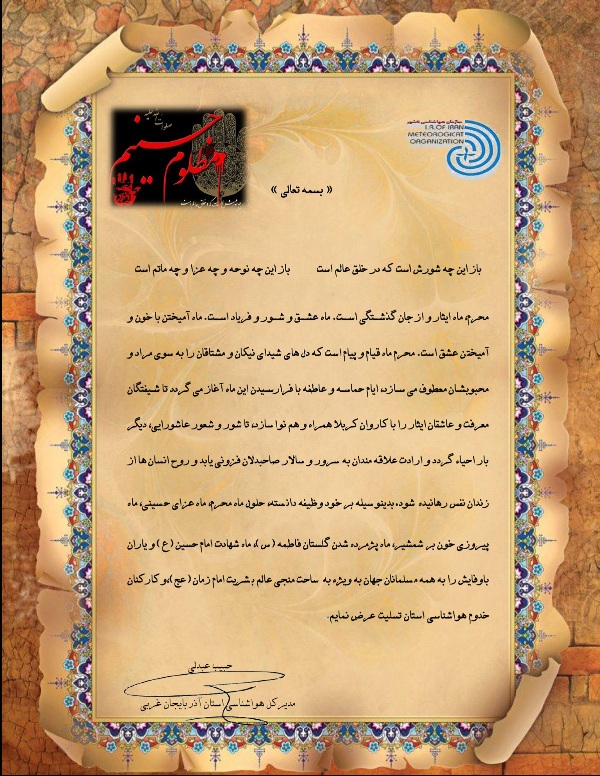 سازمان هواشناسی کشور
I.R.OF IRAN
METEOROGICAT
ORGANIZATION
حسینم
مظلوم
« بسمه تعالی »
باز این چه شورش است که در خلق عالم است باز این چه نوحه و چه عزا و چه ماتم است
محرم، ماه ایثار و از جان گذشتگی است. ماه عشق و شور و فریاد است. ماه آمیختن با خون و
آمیختن عشق است. محرم ماه قیام و پیام است که دل های شیدای نیکان و مشتاقان را به سوی مراد و
محبوبشان معطوف می سازد، ایام حماسه و عاطفه با فرارسیدن این ماه آغاز می گردد تا شیفتگان
معرفت و عاشقان ایثار را با کاروان کربلا همراه و هم نوا سازد، تا شور و شعور عاشورایی، دیگر
بار احیاء گردد و ارادت علاقه مندان به سرور و سالار صاحبدلان فزونی یابد و روح انسان ها از
زندان نفس رهانیده شود، بدینوسیله بر خود وظیفه دانسته، حلول ماه محرم، ماه عزای حسینی، ماه
پیروزی خون بر شمشیر، ماه پژمرده شدن گلستان فاطمه (س)، ماه شهادت امام حسین (ع) و یاران
باوفایش را به همه مسلمانان جهان به ویژه به ساحت منجی عالم بشریت امام زمان (عج)،و کارکنان
خدوم هواشناسی استان تسلیت عرض نمایم.
حبیب عبدلی
مدیرکل هواشناسی استان آذربایجان غربی